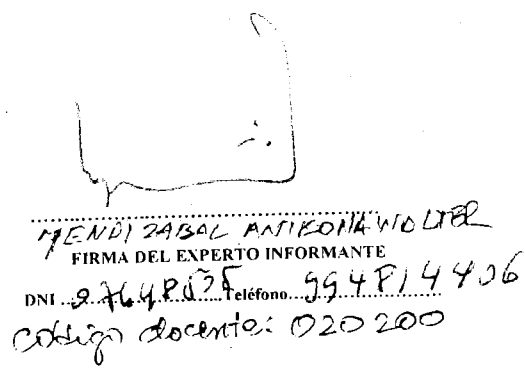 MENDIZABAL ANTIKONA WOLTER
FIRMA DEL EXPERTO INFORMANTE
DNI Teléfono 994814406
código docente: 020200